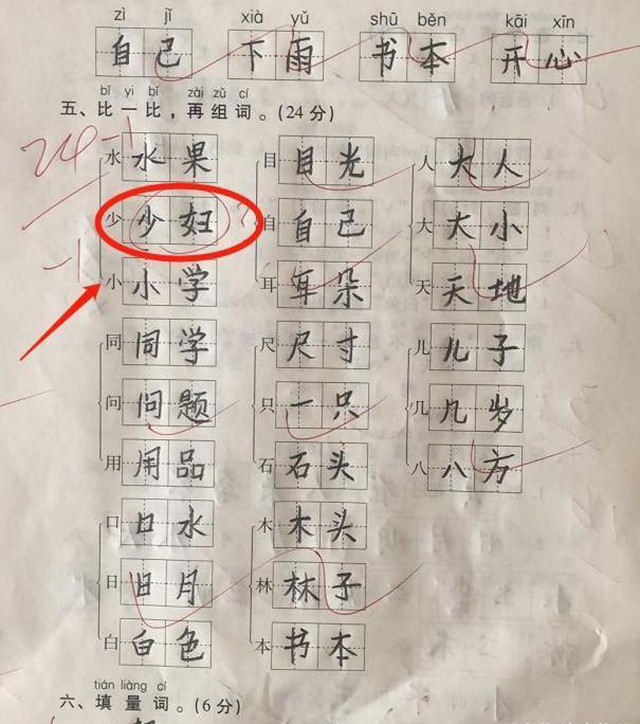 zì jǐ xià yǔ shū běn kāi xīn
自己 下雨 书本 开心
bǐ yi bǐ zài zǔ cí
五、比一比，再组词。(24分)
24-1
水 水果 目 目光 人 大人
少 少妇 ? 自 自己 大 大小
-1
小 小学 耳 耳朵 天 天地
同 同学 尺 尺寸 儿 儿子
问 问题 只 一只 几 几岁
用 用品 石 石头 八 八方
口 口水 木 木头
日 日月 林 林子
白 白色 本 书本
tián liàng cí
六、填量词。(6分)